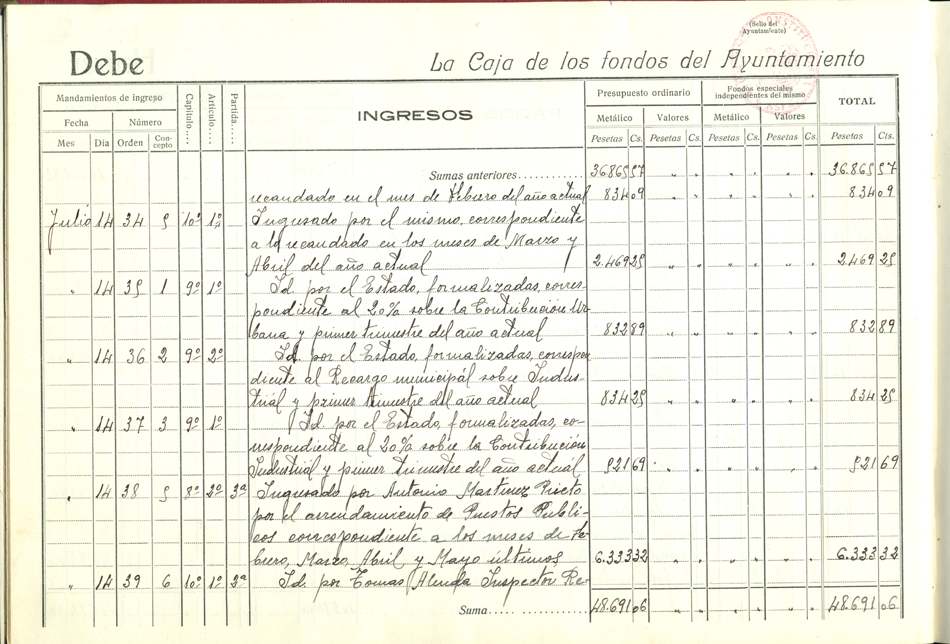 (Sello del
Ayuntamiento)
Debe
La Caja de los fondos del Ayuntamiento
Mandamientos de ingreso Capítulo.... Artículo.... Partida..... INGRESOS Presupuesto ordinario Fondos especiales independientes del mismo TOTAL
Fecha Número Metálico Valores Metálico Valores
Mes Día Orden Concepto Pesetas Cs. Pesetas Cs. Pesetas Cs. Pesetas Cs. Pesetas Cts.
Sumas anteriores............ 36865 57 " " " " " " 36.865 57
recaudado en el mes de Febrero del año actual 834 09 " " " " " " 834 09
Julio 14 34 5 10º 1º Ingresado por el mismo, correspondiente
a lo recaudado en los meses de Marzo y
Abril del año actual 2.469 25 " " " " " " 2.469 25
" 14 35 1 9º 1º Id. por el Estado, formalizadas, corres-
pondiente al 20% sobre la Contribución Ur-
bana y primer trimestre del año actual 832 89 " " " " " " 832 89
" 14 36 2 9º 2º Id. por el Estado, formalizadas, correspon
diente al Recargo municipál sobre Indus-
triál y primer trimestre del año actual 834 25 " " " " " " 834 25
" 14 37 3 9º 1º Id. por el Estado, formalizadas, co-
rrespondiente al 20% sobre la Contribución
Industriál y primer trimestre del año actual 521 69 " " " " " " 521 69
" 14 38 5 8º 2º 3ª Ingresado por Antonio Martinez Prieto
por el arrendamiento de Puestos Publi-
cos correspondiente a los meses de Fe-
brero, Marzo, Abril y Mayo últimos 6.333 32 " " " " " " 6.333 32
" 14 39 6 10º 1º 3ª Id. por Tomas Alenda Inspector Re-
Suma..... ............... 48.691 06 " " " " " " 48.691 06